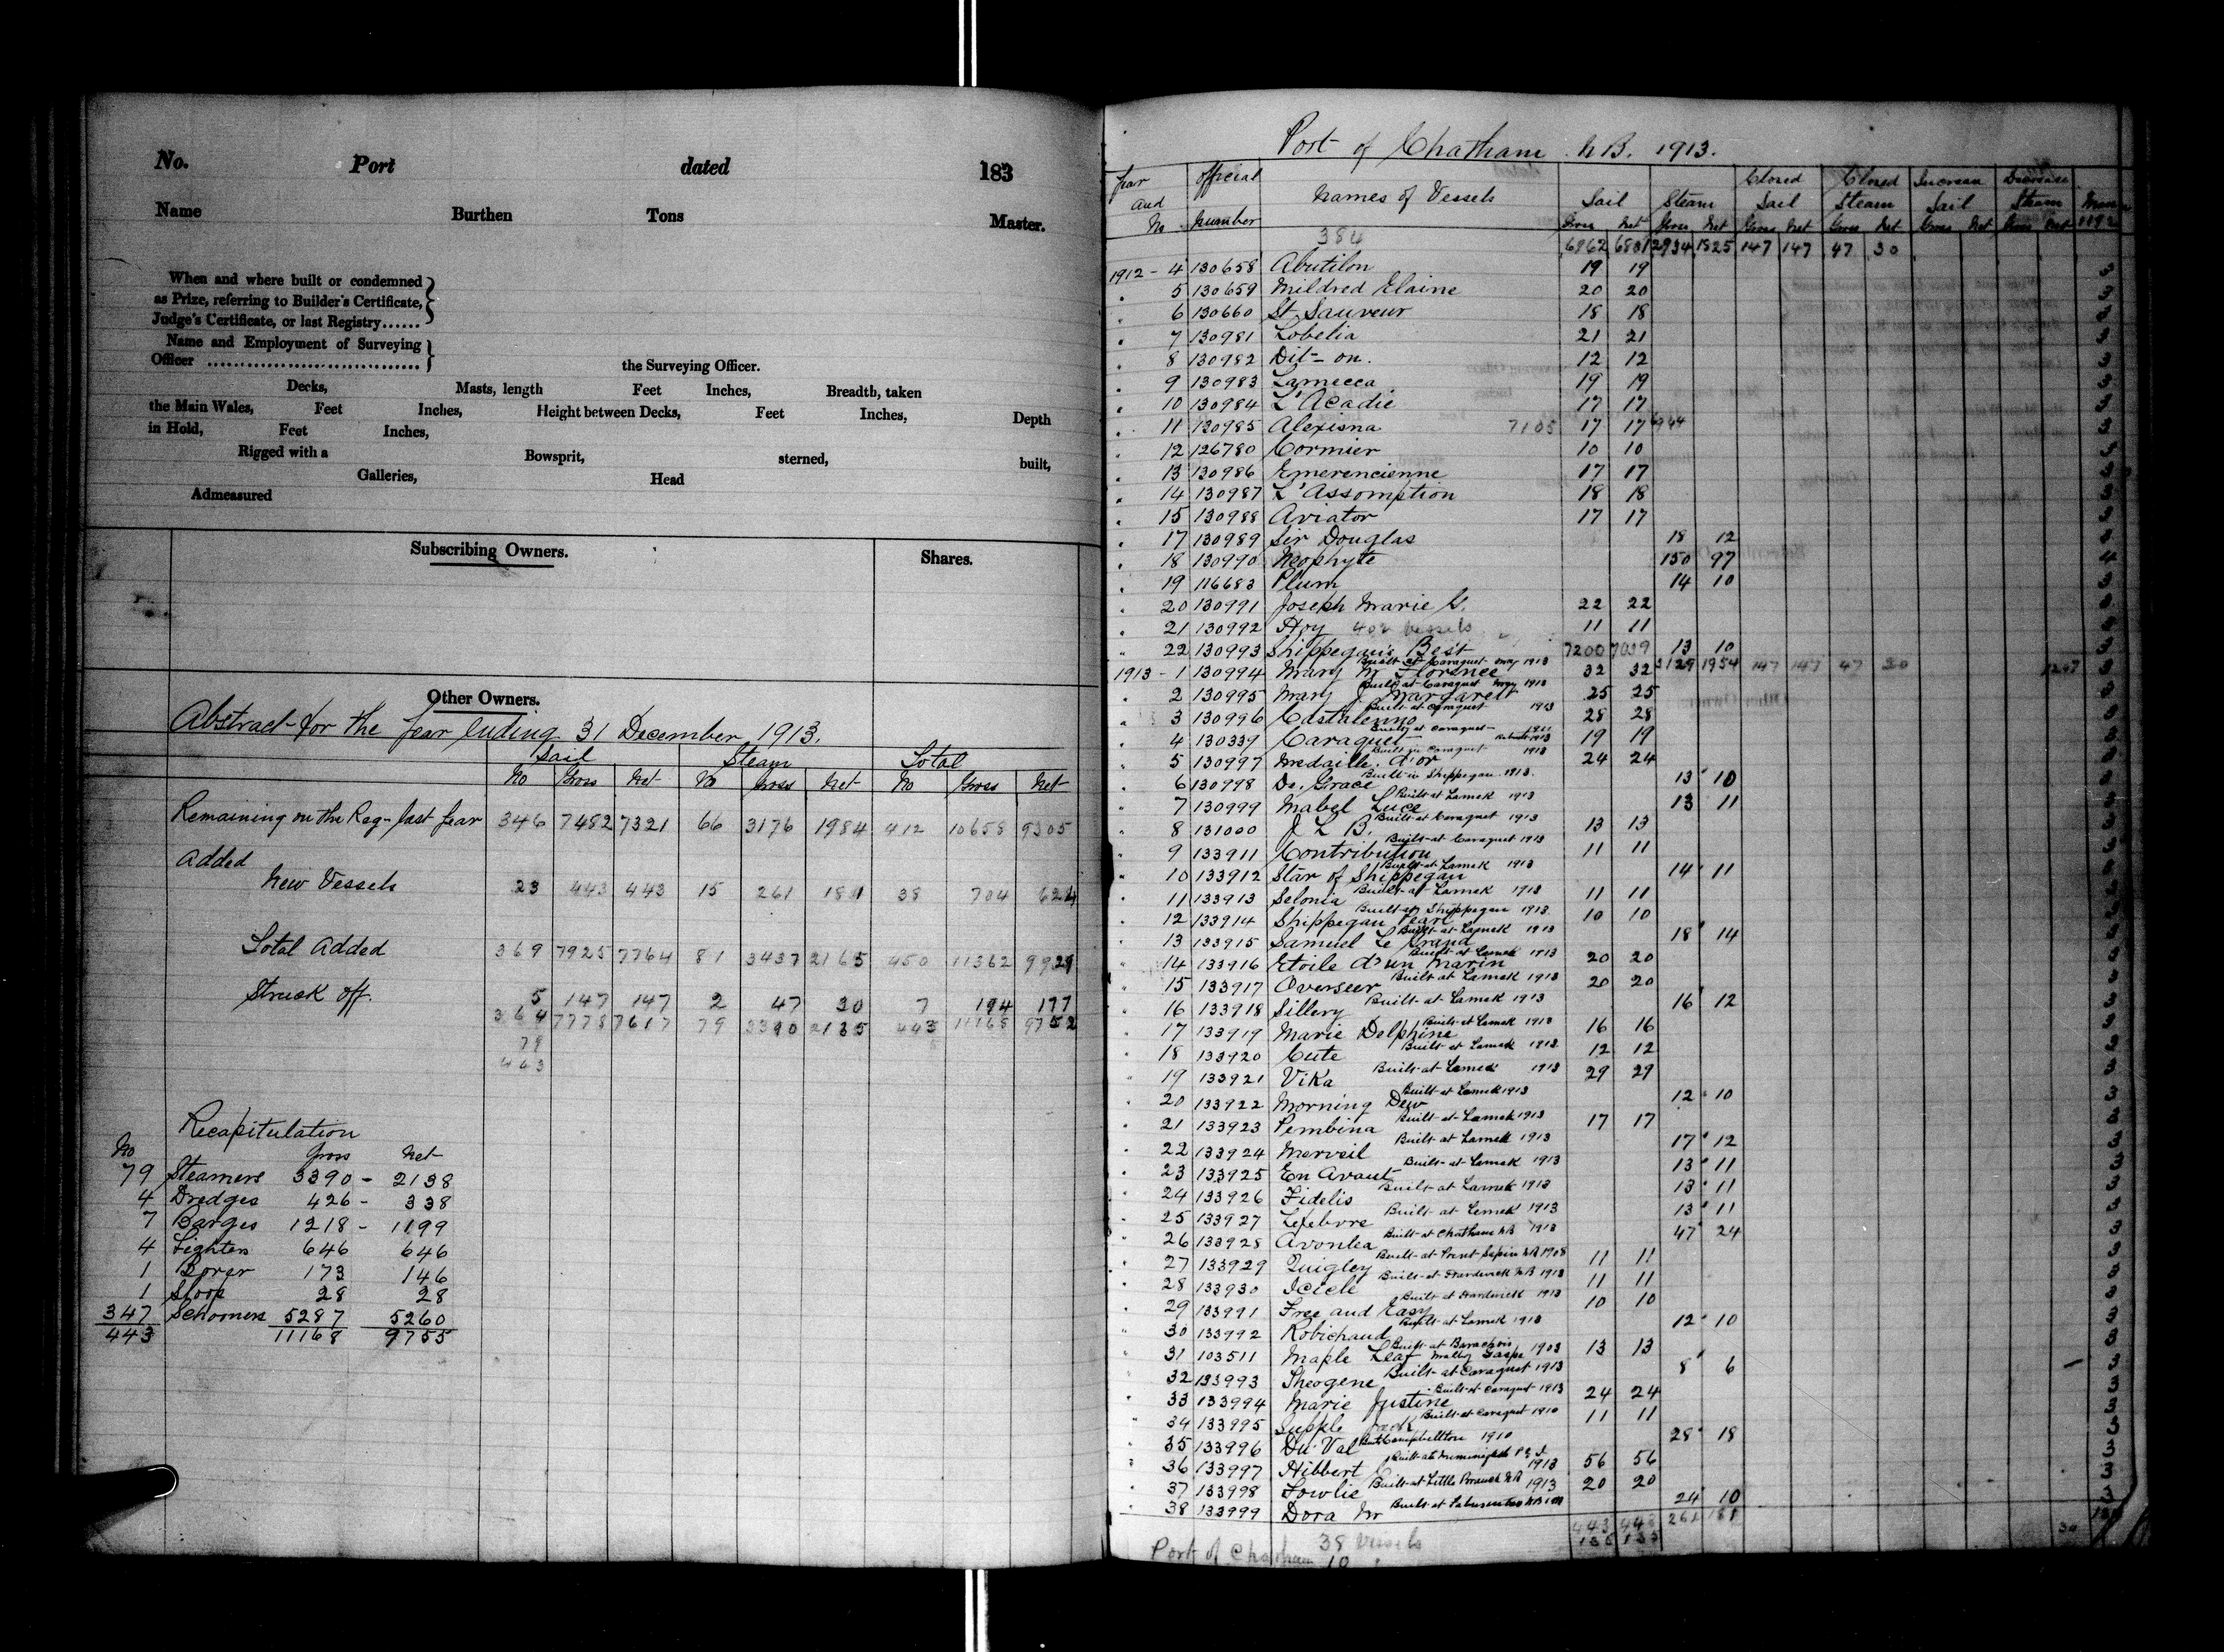 No. Port dated 183
Name Burthen Tons Master.
When and where built or condemned
as Prize, referring to Builder's Certificate,
Judge's Certificate, or last Registry......
Name and Employment of Surveying
Officer ................................ the Surveying Officer.
Decks, Masts, length Feet Inches, Breadth, taken
the Main Wales, Feet Inches, Height between Decks, Feet Inches, Depth
in Hold, Feet Inches,
Rigged with a Bowsprit, sterned, built,
Galleries, Head
Admeasured
Subscribing Owners. Shares.
Other Owners.
Abstract for the Year Ending 31 December 1913.
Sail Steam Total
No Gross Net No Gross Net No Gross Net
Remaining on the Reg- last year 346 7482 7321 66 3176 1984 412 10658 9305
Added
New Vessels 23 443 443 15 261 181 38 704 624
Total Added 369 7925 7764 81 3437 2165 450 11362 9929
Struck off. 5 147 147 2 47 30 7 194 177
364 7778 7617 79 3390 2135 443 11168 9752
79
443
Recapitulation
No Gross Net
79 Steamers 3390 - 2138
4 Dredges 426 - 338
7 Barges 1218 - 1199
4 Lighters 646 646
1 Borer 173 146
1 Sloop 28 28
347 Schooners 5287 5260
443 11168 9755
Port of Chatham N.B. 1913.
Year and No Official Number Names of Vessels Sail Steam Closed Sail Closed Steam Increase Sail Decrease Steam
Gross Net Gross Net Gross Net Gross Net Gross Net Gross Net 1192
384 6962 6801 2934 1825 147 147 47 30
1912 - 4 130658 Abutilon 19 19 3
" 5 130659 Mildred Elaine 20 20 3
" 6 130660 St. Sauveur 18 18 3
" 7 130981 Lobelia 21 21 3
" 8 130982 Dit-on. 12 12 3
" 9 130983 Lamecca 19 19 3
" 10 130984 L'Acadie 17 17 3
" 11 130985 Alexisna 7105 17 17 6944 3
" 12 126780 Cormier 10 10 3
" 13 130986 Emerencienne 17 17 3
" 14 130987 L'Assomption 18 18 3
" 15 130988 Aviator 17 17 3
" 17 130989 Sir Douglas 18 12 3
" 18 130990 Neophyte 150 97 4
" 19 116683 Plum 14 10 3
" 20 130991 Joseph Marie G. 22 22 3
" 21 130992 Hoy 402 vessels 11 11 3
" 22 130993 Shippegan's Best 7200 7039 13 10 3
1913 - 1 130994 Mary M Florence Built at Caraquet May 1913 32 32 3129 1954 147 147 47 30 1247 3
" 2 130995 Mary J Margarett Built at Caraquet May 1913 25 25 3
" 3 130996 Castalenno Built at Caraquet 1913 28 28 3
" 4 130339 Caraquet Built at Caraquet 1911 Rebuilt 1913 19 19 3
" 5 130997 Medaille d'or Built in Caraquet 1913 24 24 3
" 6 130998 De. Grace Built in Shippegan 1913. 13 10 3
" 7 130999 Mabel Luce Built at Lamek 1913 13 11 3
" 8 131000 J L B. Built at Caraquet 1913 13 13 3
" 9 133911 Contribution Built at Caraquet 1913 11 11 3
" 10 133912 Star of Shippegan Built at Lamek 1913 14 11 3
" 11 133913 Selonia Built at Lamek 1913 11 11 3
" 12 133914 Shippegan Pearl Built at Shippegan 1913. 10 10 3
" 13 133915 Samuel Le Grand Built at Lamek 1913 18 14 3
" 14 133916 Etoile d'un Marin Built at Lamek 1913 20 20 3
" 15 133917 Overseer Built at Lamek 1913 20 20 3
" 16 133918 Sillery Built at Lamek 1913 16 12 3
" 17 133919 Marie Delphine Built at Lamek 1913 16 16 3
" 18 133920 Cute Built at Lamek 1913. 12 12 3
" 19 133921 Vika Built at Lamek 1913 29 29 3
" 20 133922 Morning Dew Built at Lamek 1913 12 10 3
" 21 133923 Pembina Built at Lamek 1913 17 17 3
" 22 133924 Merveil Built at Lamek 1913 17 12 3
" 23 133925 En Avant Built at Lamek 1913 13 11 3
" 24 133926 Fidelis Built at Lamek 1913 13 11 3
" 25 133927 Lefebvre Built at Lemek 1913 13 11 3
" 26 133928 Avonlea Built at Chatham NB 1913 47 24 3
" 27 133929 Quigley Built at Point Sapin NB 1908 11 11 3
" 28 133930 Icicle Built at Hardwick NB 1913 11 11 3
" 29 133991 Free and Easy Built at Hardwick 1913 10 10 3
" 30 133992 Robichaud Built at Lamek 1913 12 10 3
" 31 103511 Maple Leaf Built at Barachois Malbay Gaspe 1903 13 13 3
" 32 133993 Theogene Built at Caraquet 1913 8 6 3
" 33 133994 Marie Justine Built at Caraquet 1913 24 24 3
" 34 133995 Supple Jack Built at Caraquet 1910 11 11 3
" 35 133996 Du Val Built Campbellton 1910 28 18 3
" 36 133997 Hibbert Built at Miminigash P.E.I. 1913 56 56 3
" 37 133998 Fowlie Built at Little Branch NB 1913 20 20 3
" 38 133999 Dora M Built at 24 10 3
443 443 261 181
38 Vessels 135 133 30
Port of Chatham 10